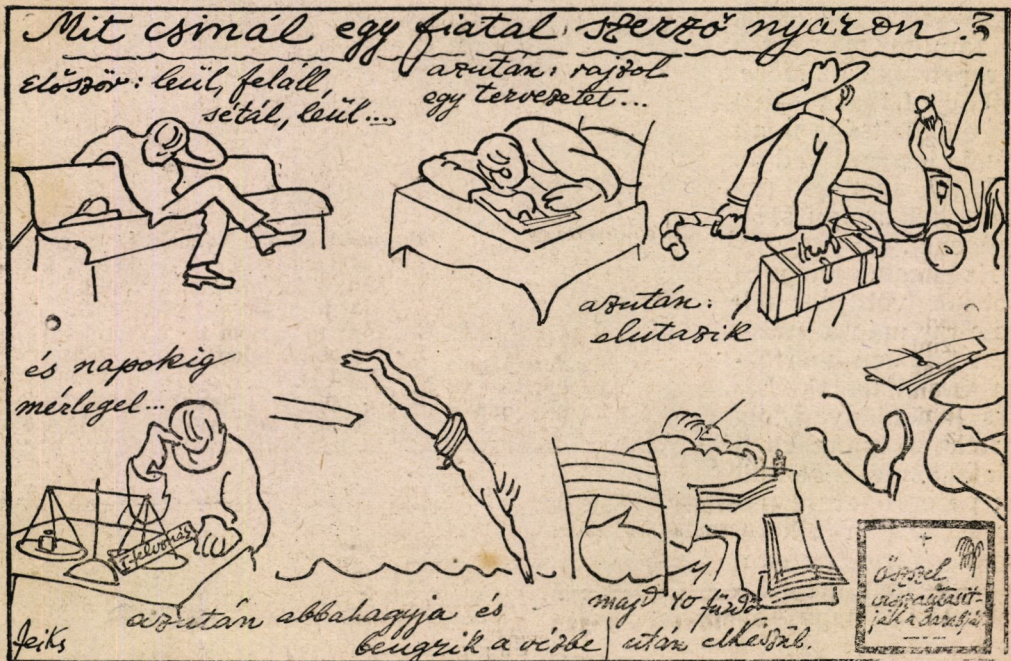 Mit csinál egy fiatal szerző nyáron.?
Először: leül, feláll,
sétál, leül...
azután: rajzol
egy tervezetet...
azután:
elutazik
és napokig
mérlegel...
I. felvonás
azután abbahagyja és
beugrik a vízbe
majd 40 fürdő
után elkészül.
ősszel
visszautasít-
ják a darabját
Jeiks